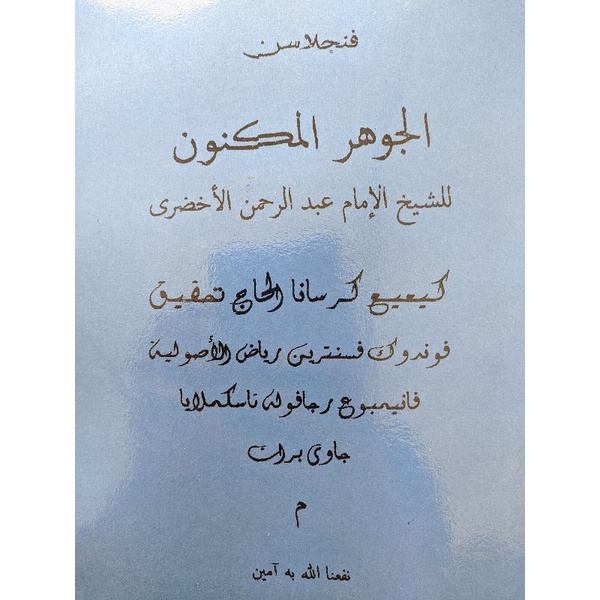 فنجلاسن
الجوهر المكنون
للشيخ الإمام عبد الرحمن الأخضرى
كيعيع كرسانا الحاج تحقيق
فوندوك فسنترين رياض الأصولية
فانيمبوع رجافوله تاسكملايا
جاوى برات
م
نفعنا الله به آمين